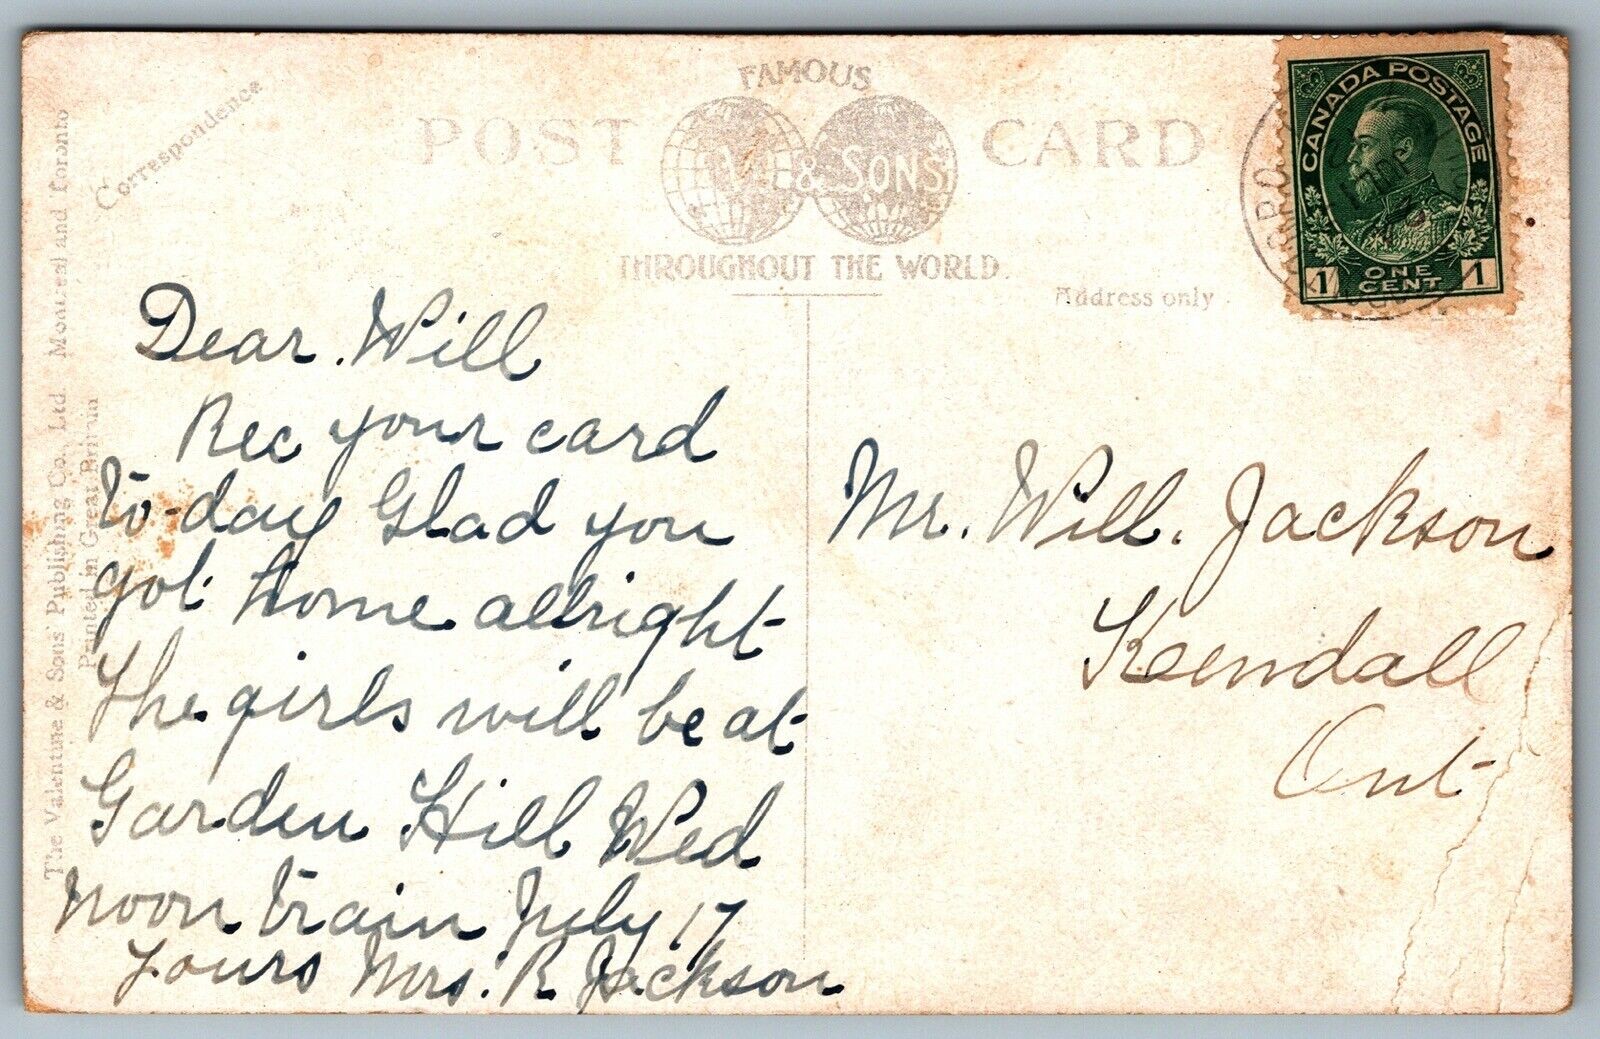 Correspondence
FAMOUS
POST CARD
& SONS
THROUGHOUT THE WORLD
Address only
CANADA POSTAGE
1 ONE CENT 1
The Valentine & Sons' Publishing Co., Ltd. Montreal and Toronto
Printed in Great Britain
Dear Will
Rec your card
to-day Glad you
got home allright
The girls will be at
Garden Hill Wed
noon train July 17
Yours Mrs. R. Jackson
Mr. Will. Jackson
Kendall
Ont